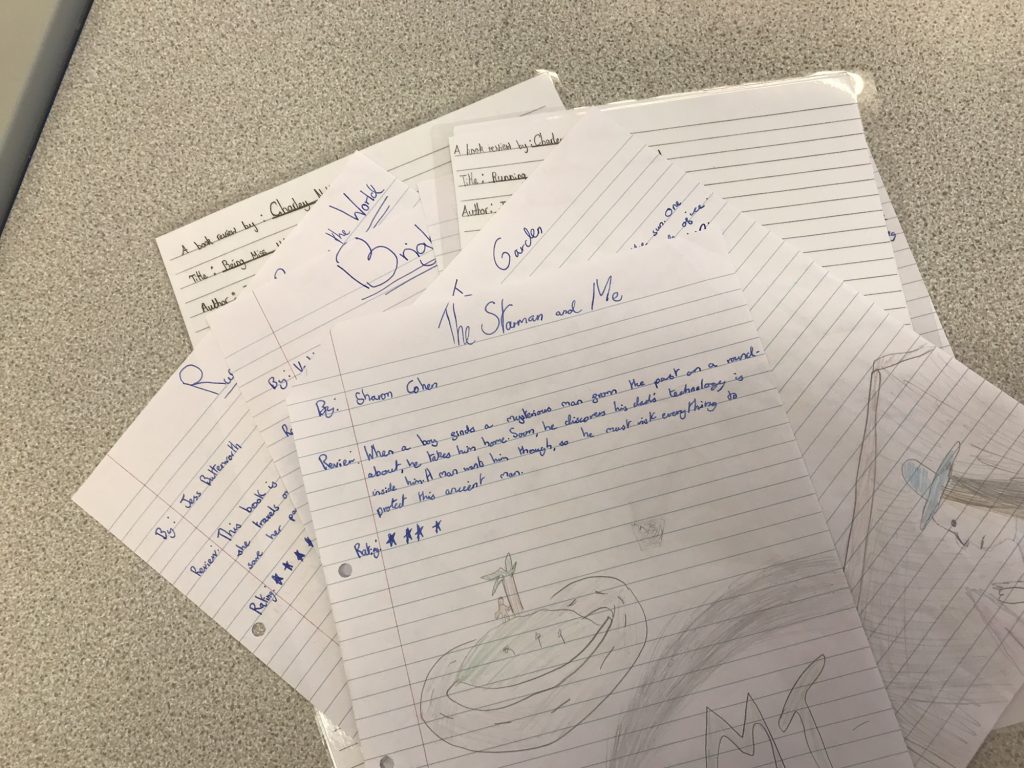 A book review by: Charley
Title: Being Miss
Author:
A book review by: Charley
Title: Running
Author:
the World
Brig
Garden
the sun. One
of ice-
Ru
By: Jess Butterworth
Review: This book is
she travels
save her
Rating: ★★★★
By:
The Starman and Me
By: Sharon Cohen
Review: When a boy finds a mysterious man from the past on a round-
about, he takes him home. Soon, he discovers his dad's technology is
inside him. A man wants him though, so he must risk everything to
protect this ancient man.
Rating: ★★★★